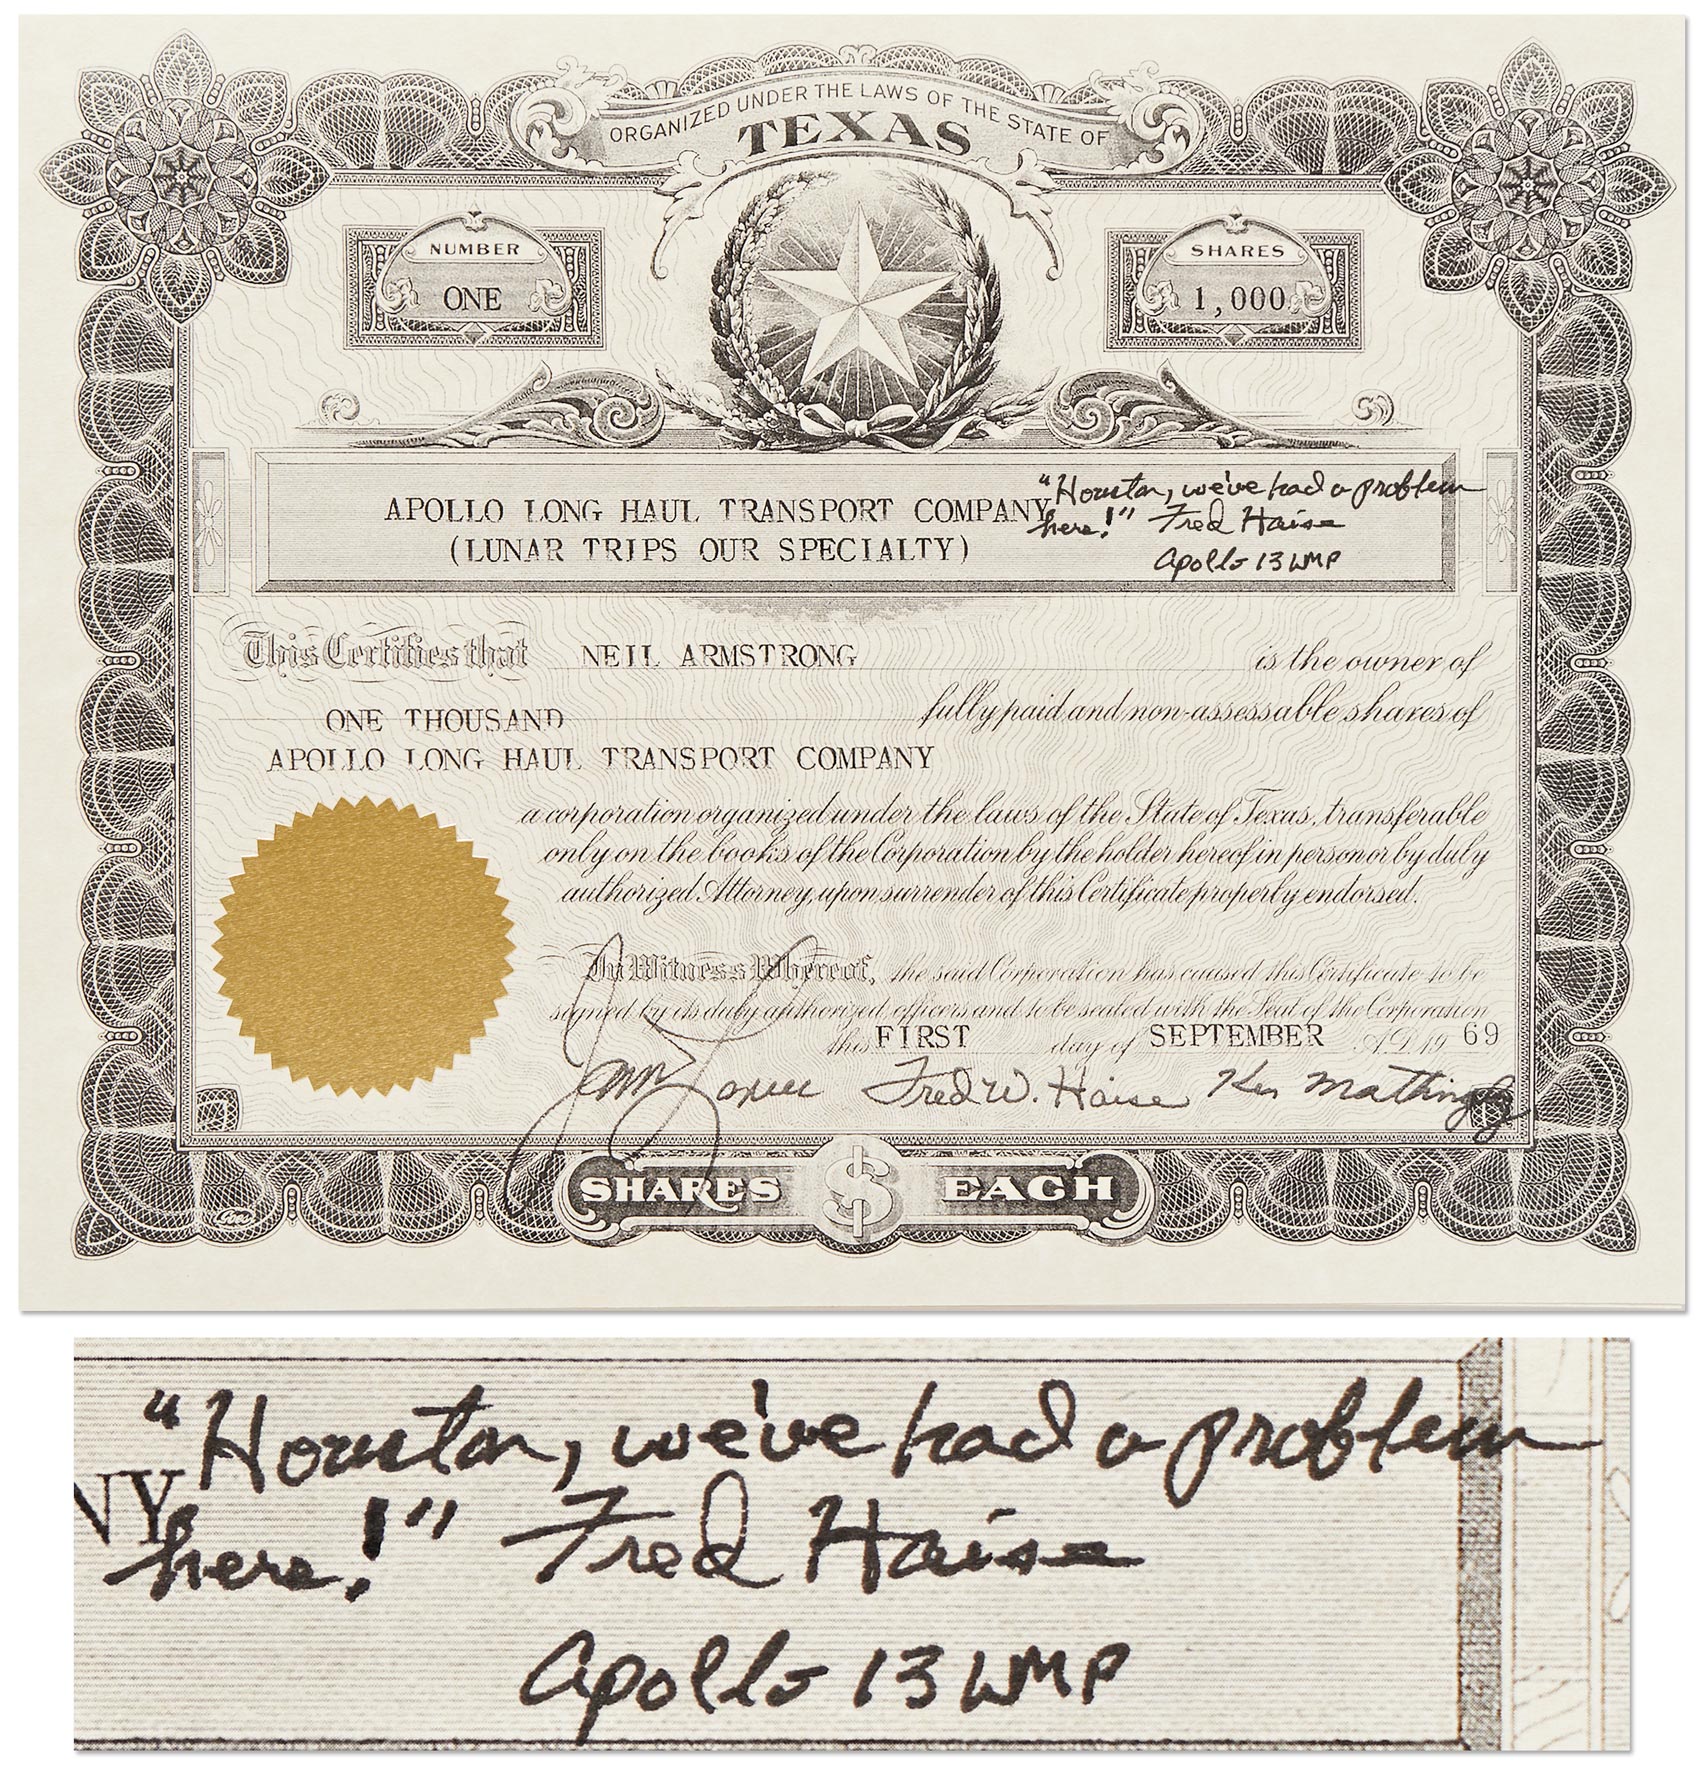 ORGANIZED UNDER THE LAWS OF THE STATE OF
TEXAS
NUMBER
ONE
SHARES
1,000
APOLLO LONG HAUL TRANSPORT COMPANY
(LUNAR TRIPS OUR SPECIALTY)
"Houston, we've had a problem
here!" Fred Haise
Apollo 13 LMP
This Certifies that NEIL ARMSTRONG is the owner of
ONE THOUSAND fully paid and non-assessable shares of
APOLLO LONG HAUL TRANSPORT COMPANY
a corporation organized under the laws of the State of Texas, transferable
only on the books of the Corporation by the holder hereof in person or by duly
authorized Attorney, upon surrender of this Certificate properly endorsed.
In Witness Whereof, the said Corporation has caused this Certificate to be
signed by its duly authorized officers and to be sealed with the Seal of the Corporation
this FIRST day of SEPTEMBER A.D. 19 69
James Lovell Fred W. Haise Ken Mattingly
SHARES $ EACH
Goes
"Houston, we've had a problem
NY
here!" Fred Haise
Apollo 13 LMP